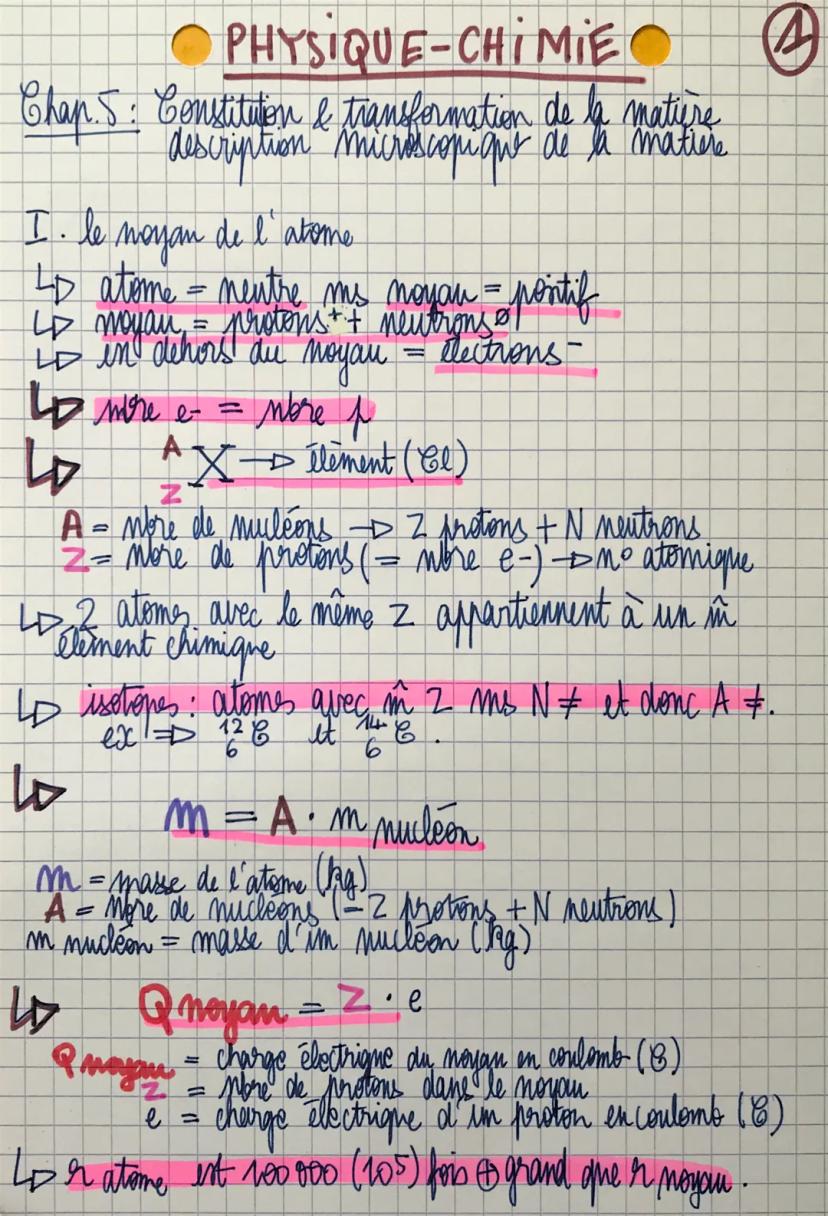 PHYSIQUE-CHIMIE
1
Chap.5: Constitution & transformation de la matière
description microscopique de la matière
I. le noyau de l'atome
↳ atome = neutre ms noyau = positif
↳ noyau = protons⁺ + neutrons⁰
↳ en dehors du noyau = électrons⁻
↳ nbre e- = nbre p
↳ A Z X → élément (Cl)
A = nbre de nucléons → Z protons + N neutrons
Z = nbre de protons (= nbre e-) → n° atomique
↳ 2 atomes avec le même Z appartiennent à un m̂
élément chimique
↳ isotopes : atomes avec m̂ Z ms N ≠ et donc A ≠.
ex ⇒ ¹²₆C et ¹⁴₆C.
↳ m = A · m nucléon
m = masse de l'atome (kg)
A = nbre de nucléons (= Z protons + N neutrons)
m nucléon = masse d'un nucléon (kg)
↳ Q noyau = Z · e
Q noyau = charge électrique du noyau en coulomb (C)
Z = nbre de protons dans le noyau
e = charge électrique d'un proton en coulomb (C)
↳ r atome est 100 000 (10⁵) fois ⊕ grand que r noyau.